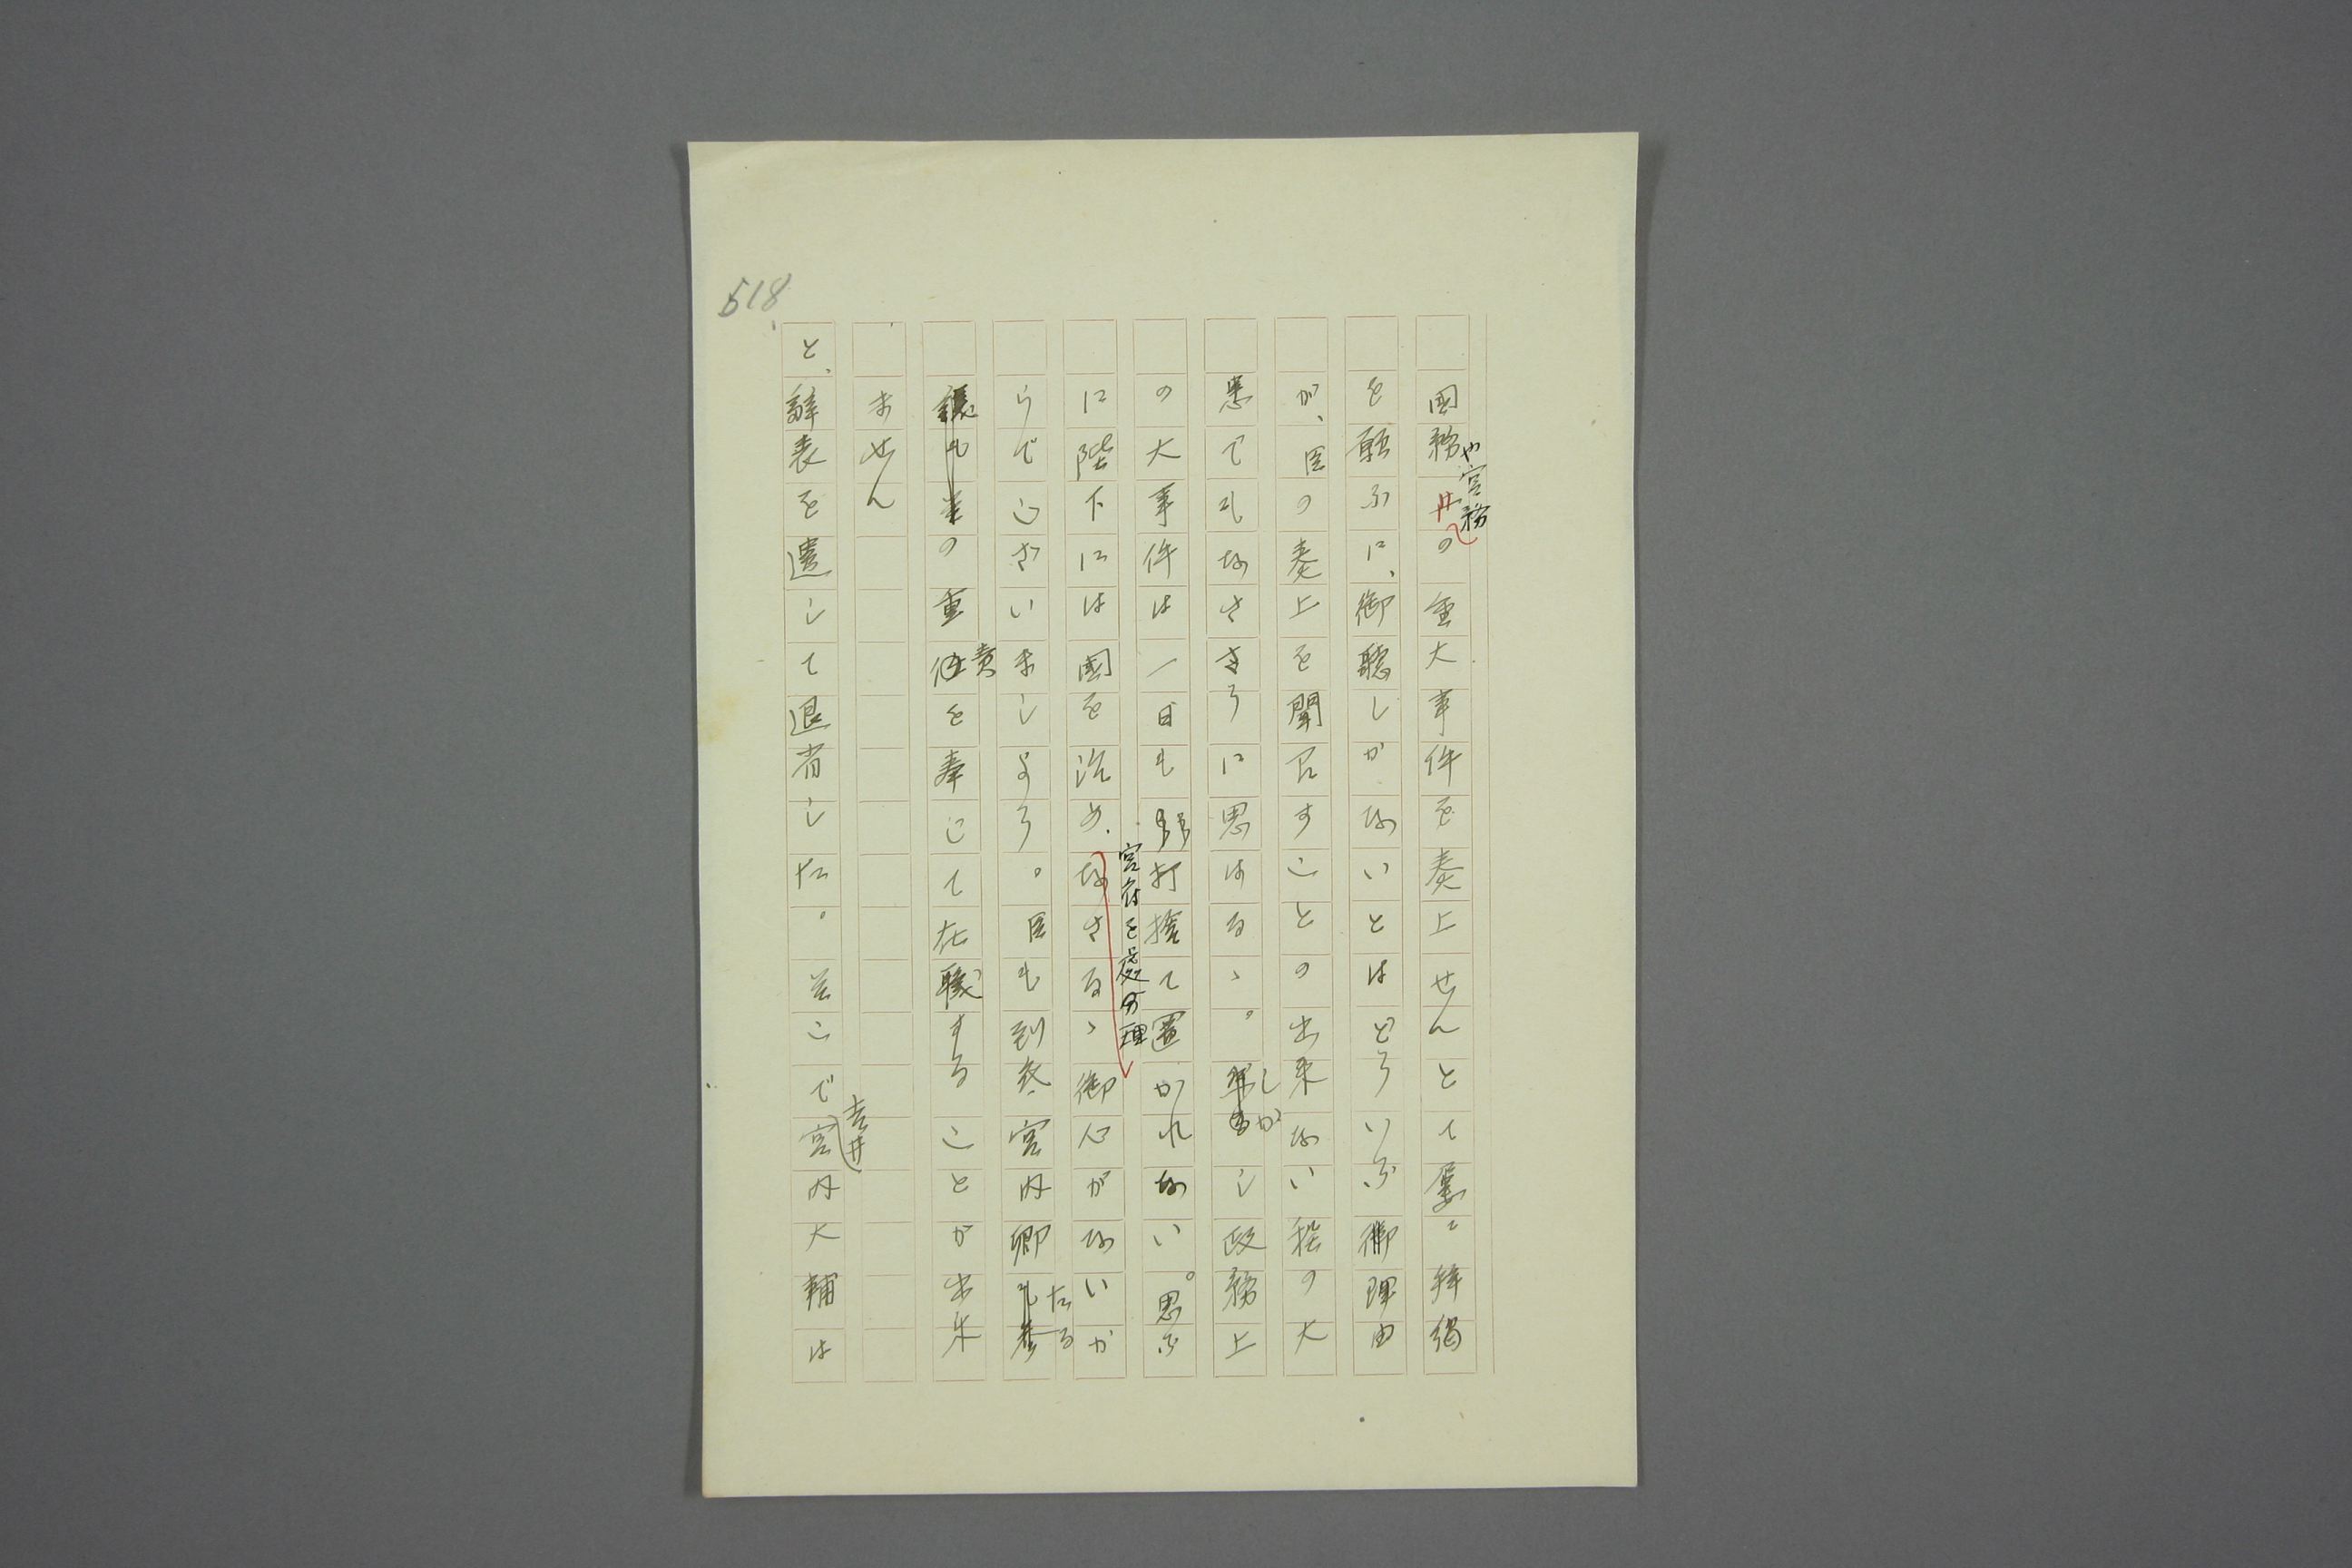 518
国務や宮務の重大事件を奏上せんとて屡々拝謁
を願ふに、御聴しがないとはどういふ御理由
が、臣の奏上を聞召すことの出来ない程の大
患でもなさそうに思はるゝ。しかし政務上
の大事件は一日も打捨て置かれない。思ふ
に陛下には國を治め、宮府を処理なさるゝ御心がないか
らでございましよう。臣も到底宮内卿たる
の重責を奉じて在職することが出来
ません
と、辞表を遺して退省した。そこで吉井宮内大輔は